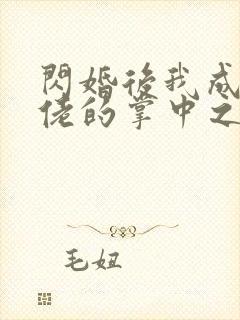 閃婚後我成
佬的掌中之
毛妞